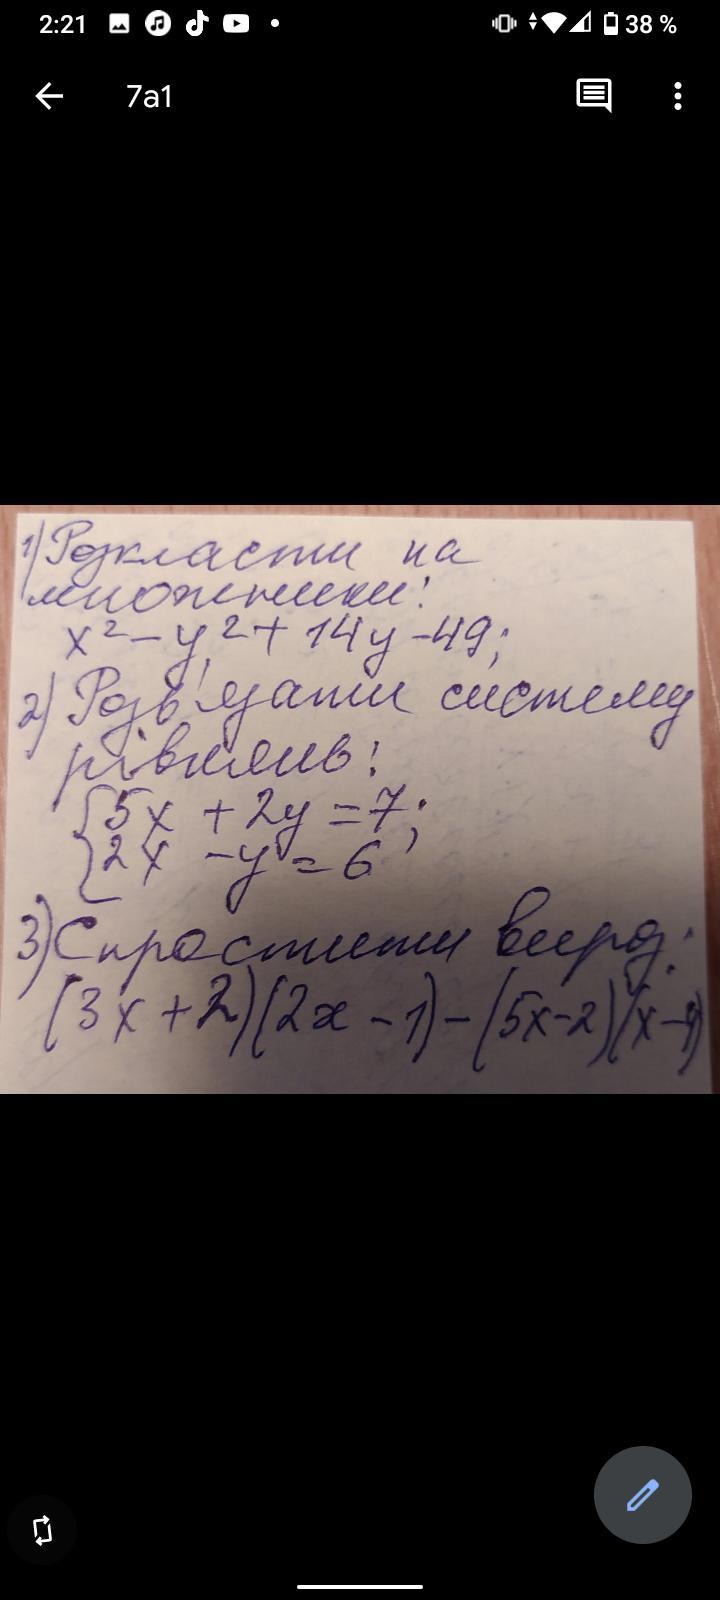 2:21
38 %
7а1
1) Розкласти на
множники:
x² - y² + 14y - 49;
2) Розв'язати систему
рівнянь:
{5x + 2y = 7;
{2x - y = 6
3) Спростити вираз:
(3x + 2)(2x - 1) - (5x - 2)(x - 4)